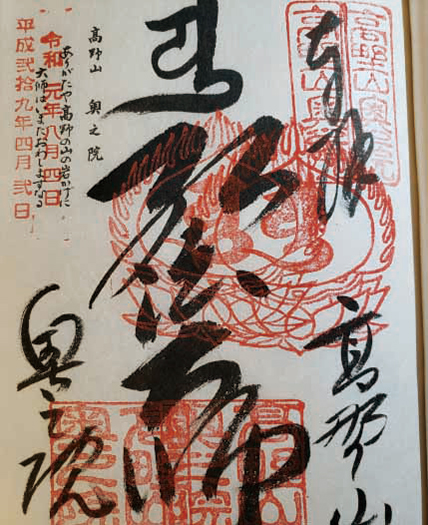 奉拝
高野山
弘法大師
高野山　奥之院
ありがたや高野の山の岩かげに
大師はいまだおわしますなる
令和元年八月四日
平成弐拾九年四月弐日
奥之院
高野山奥之院